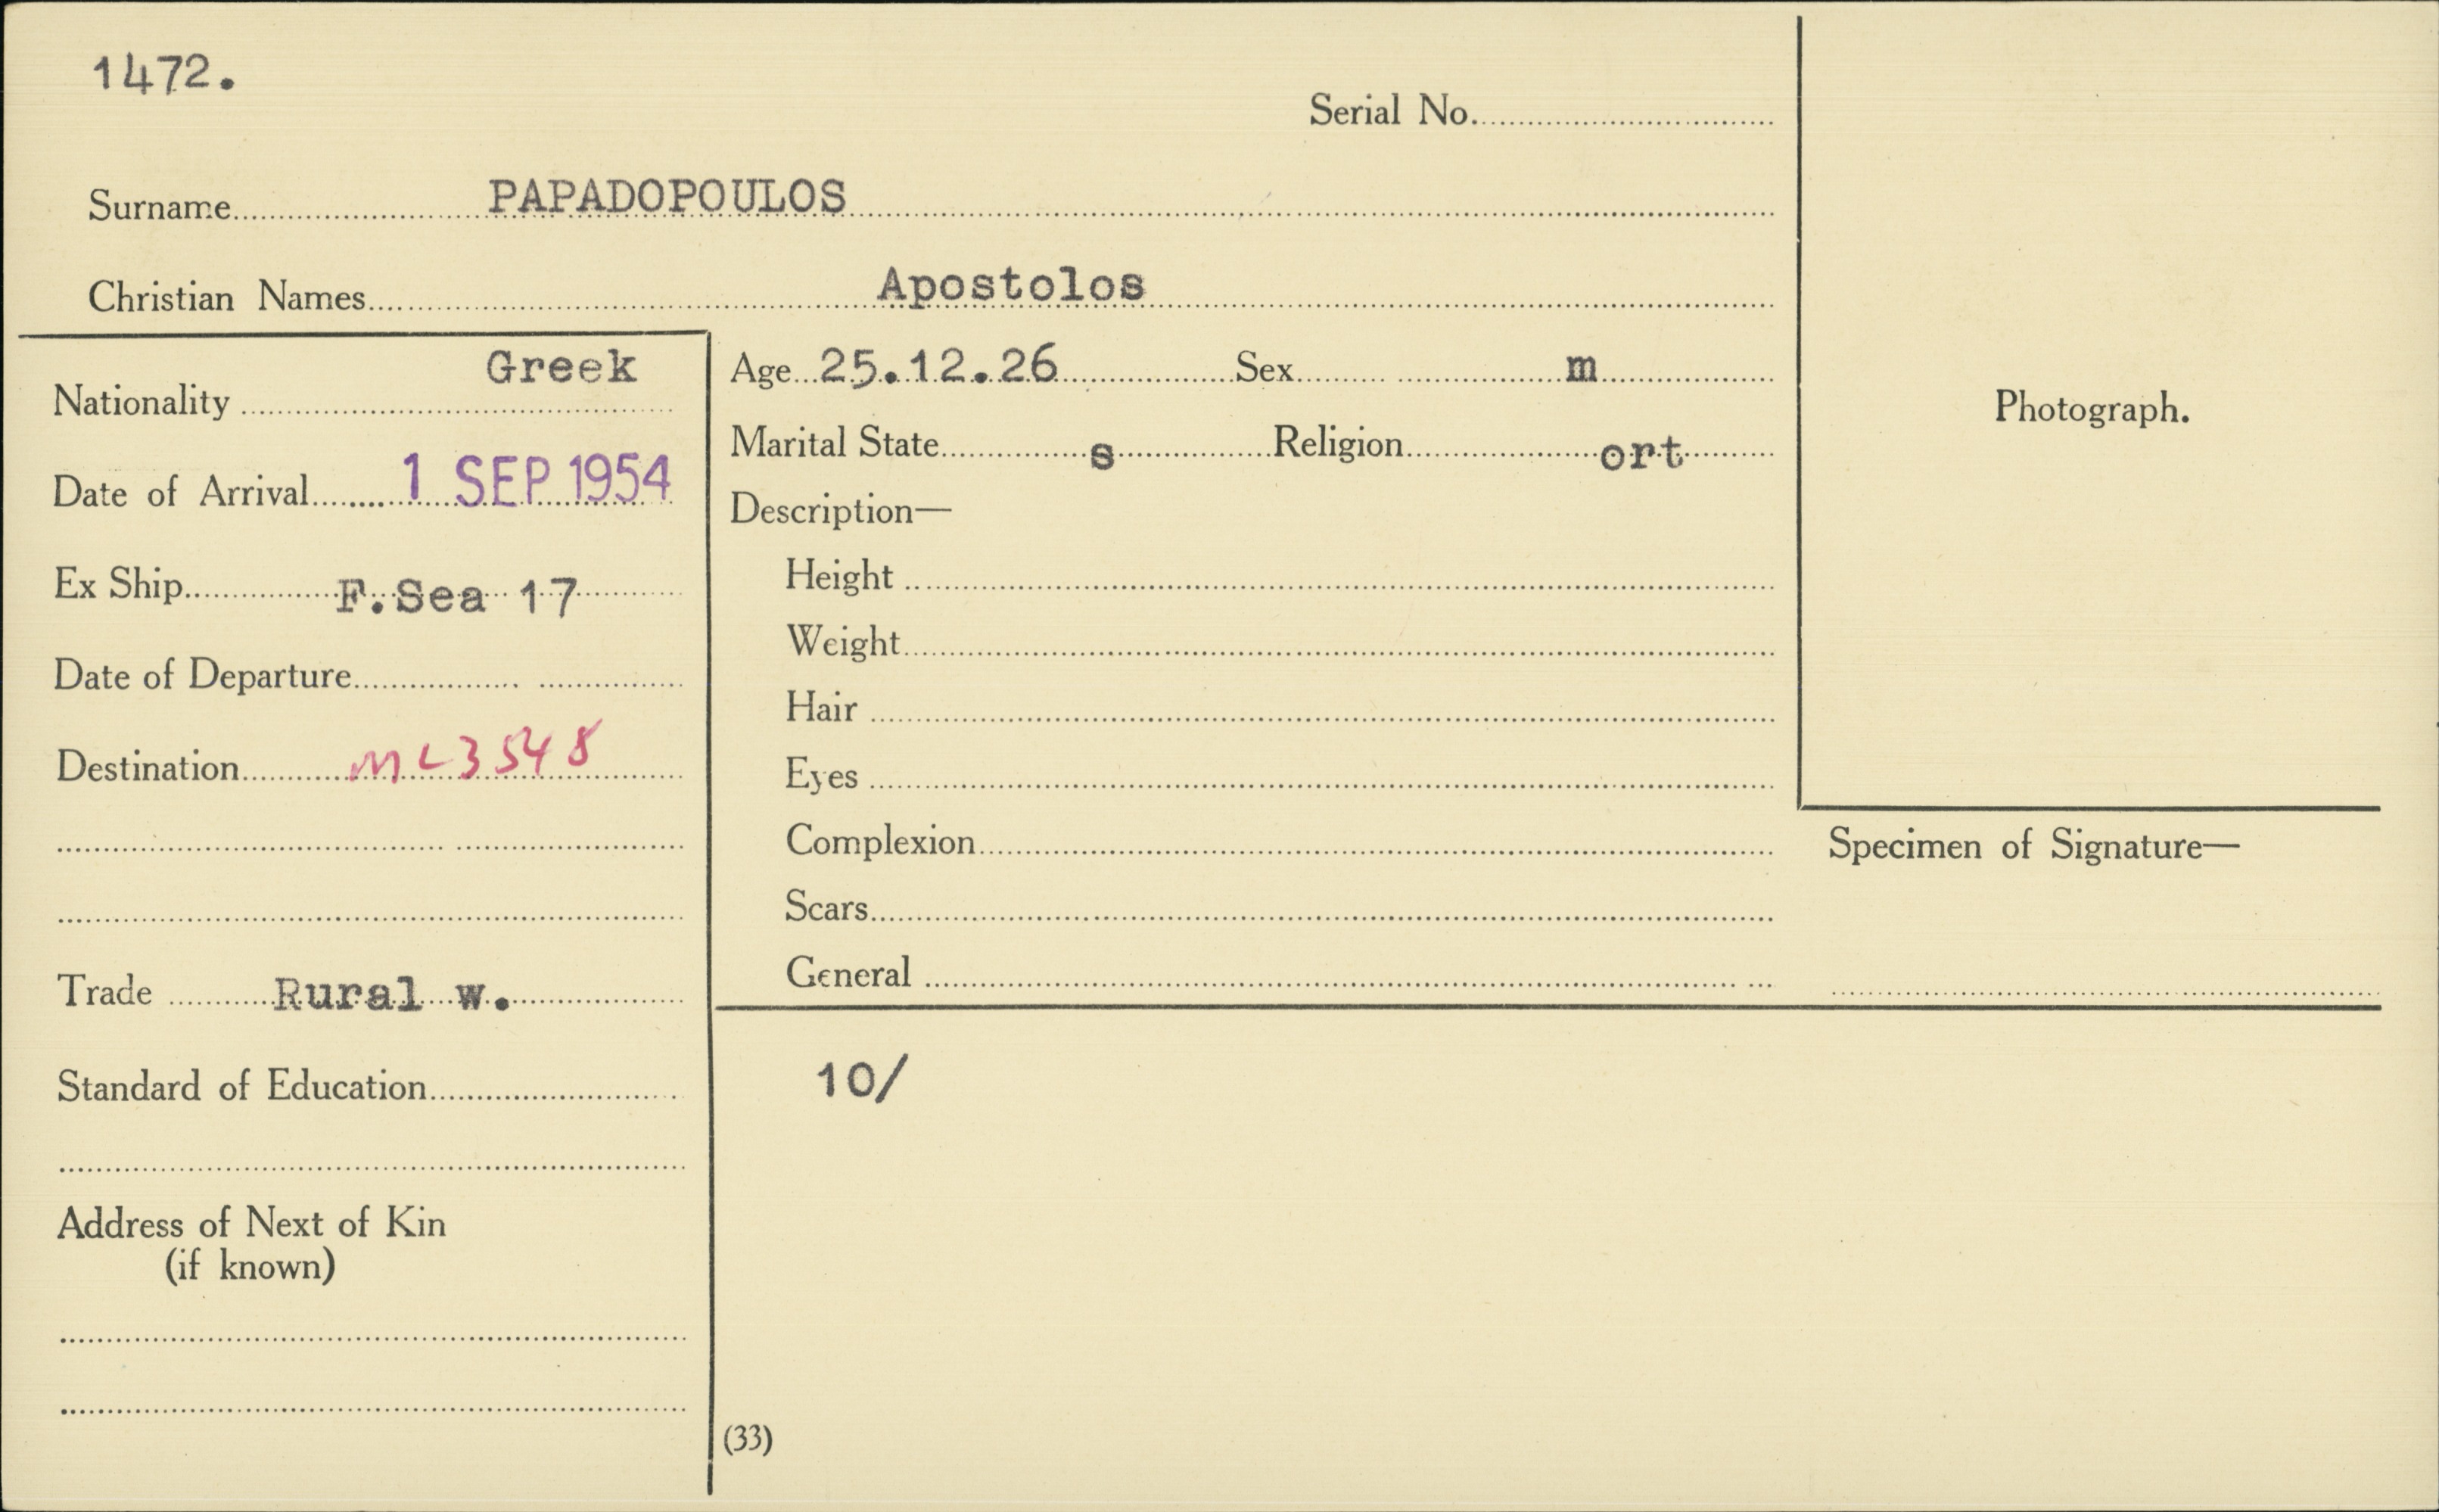 1472.
Serial No.
Surname PAPADOPOULOS
Christian Names Apostolos
Nationality Greek
Date of Arrival 1 SEP 1954
Ex Ship F.Sea 17
Date of Departure
Destination ML3548
Trade Rural w.
Standard of Education
Address of Next of Kin
(if known)
Age 25.12.26 Sex m
Marital State s Religion ort
Description—
Height
Weight
Hair
Eyes
Complexion
Scars
General
10/
(33)
Photograph.
Specimen of Signature—